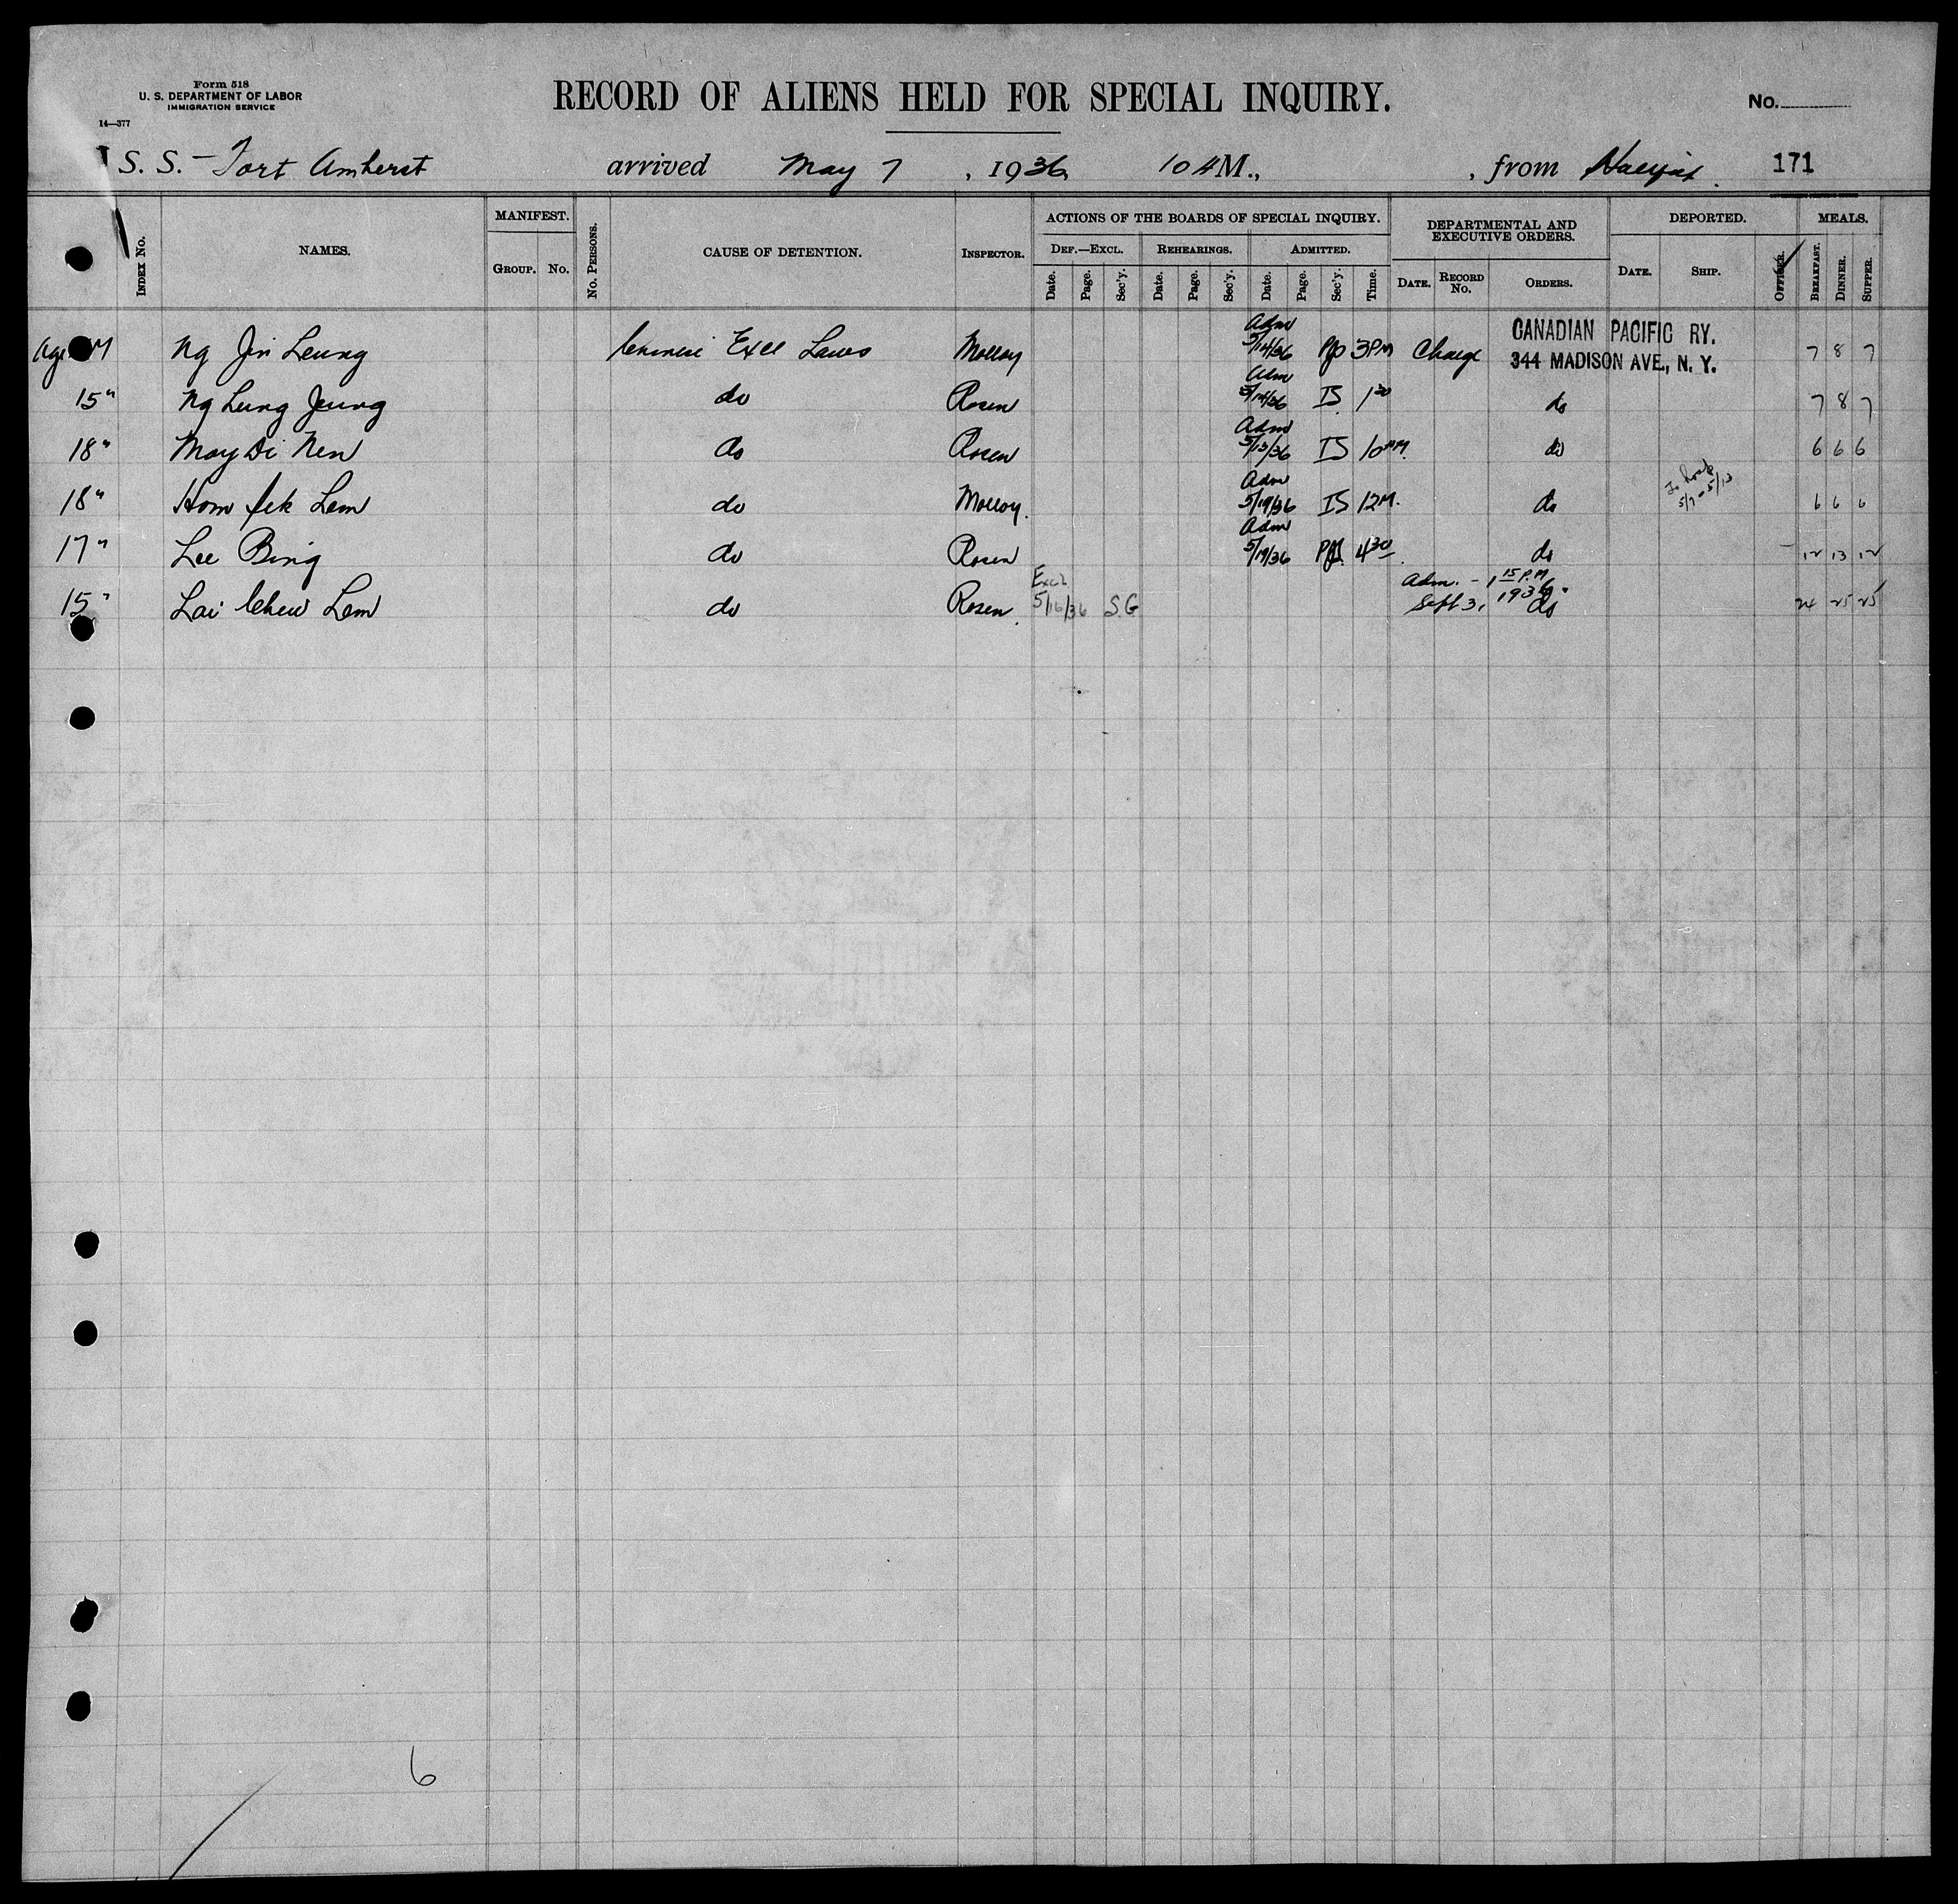 Form 518
U. S. DEPARTMENT OF LABOR
IMMIGRATION SERVICE
14—377
RECORD OF ALIENS HELD FOR SPECIAL INQUIRY.
No.
S. S. – Fort Amherst arrived May 7, 1936, 10 AM., , from Halifax. 171
INDEX No. NAMES. MANIFEST. GROUP. No. No. PERSONS. CAUSE OF DETENTION. INSPECTOR. ACTIONS OF THE BOARDS OF SPECIAL INQUIRY. DEF.—EXCL. Date. Page. Sec'y. REHEARINGS. Date. Page. Sec'y. ADMITTED. Date. Page. Sec'y. Time. DEPARTMENTAL AND EXECUTIVE ORDERS. DATE. RECORD No. ORDERS. DEPORTED. DATE. SHIP. OFFICER. MEALS. BREAKFAST. DINNER. SUPPER.
Age M Ng Jin Leung Chinese Excl Laws Molloy Adm 5/14/36 3PM Charge CANADIAN PACIFIC RY. 344 MADISON AVE., N. Y. 7 8 7
15 " Ng Lung Jeung do Rosen Adm 5/14/36 IS 1 30 do 7 8 7
18 " Moy Di Nen do Rosen Adm 5/13/36 IS do 6 6 6
18 " Hom Lam do Molloy. Adm 5/19/36 IS 12M. do 5/7 - 5/13 6 6 6
17 " Lee Bing do Rosen Adm 5/19/36 4 30 do 12 13 12
15 " Lai Chew Lem do Rosen. Excl 5/16/36 S.G Adm. – 1 15 P.M Sept 3, 1936. do 24 25 25
6